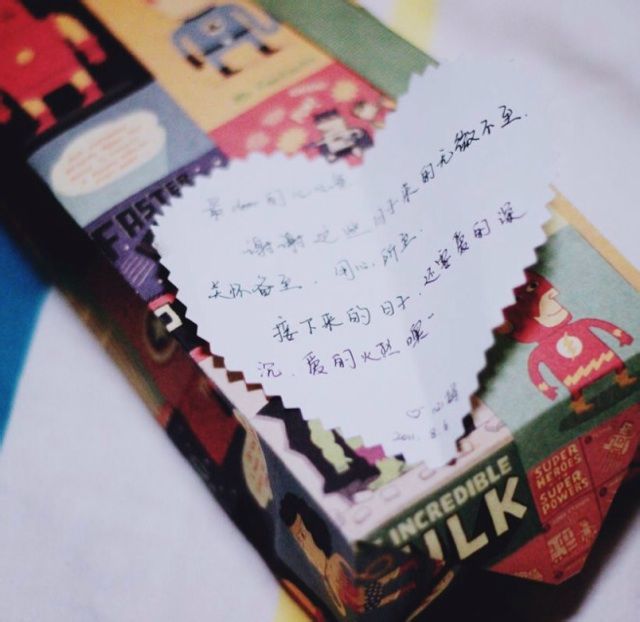 谢谢这些日子来的无微不至.
关怀备至. 用心所至.
接下来的日子. 还要爱的深
沉. 爱的火热噢~
2011. 8. 6
FASTER
INCREDIBLE
ULK
SUPER
HEROES
SUPER
POWERS